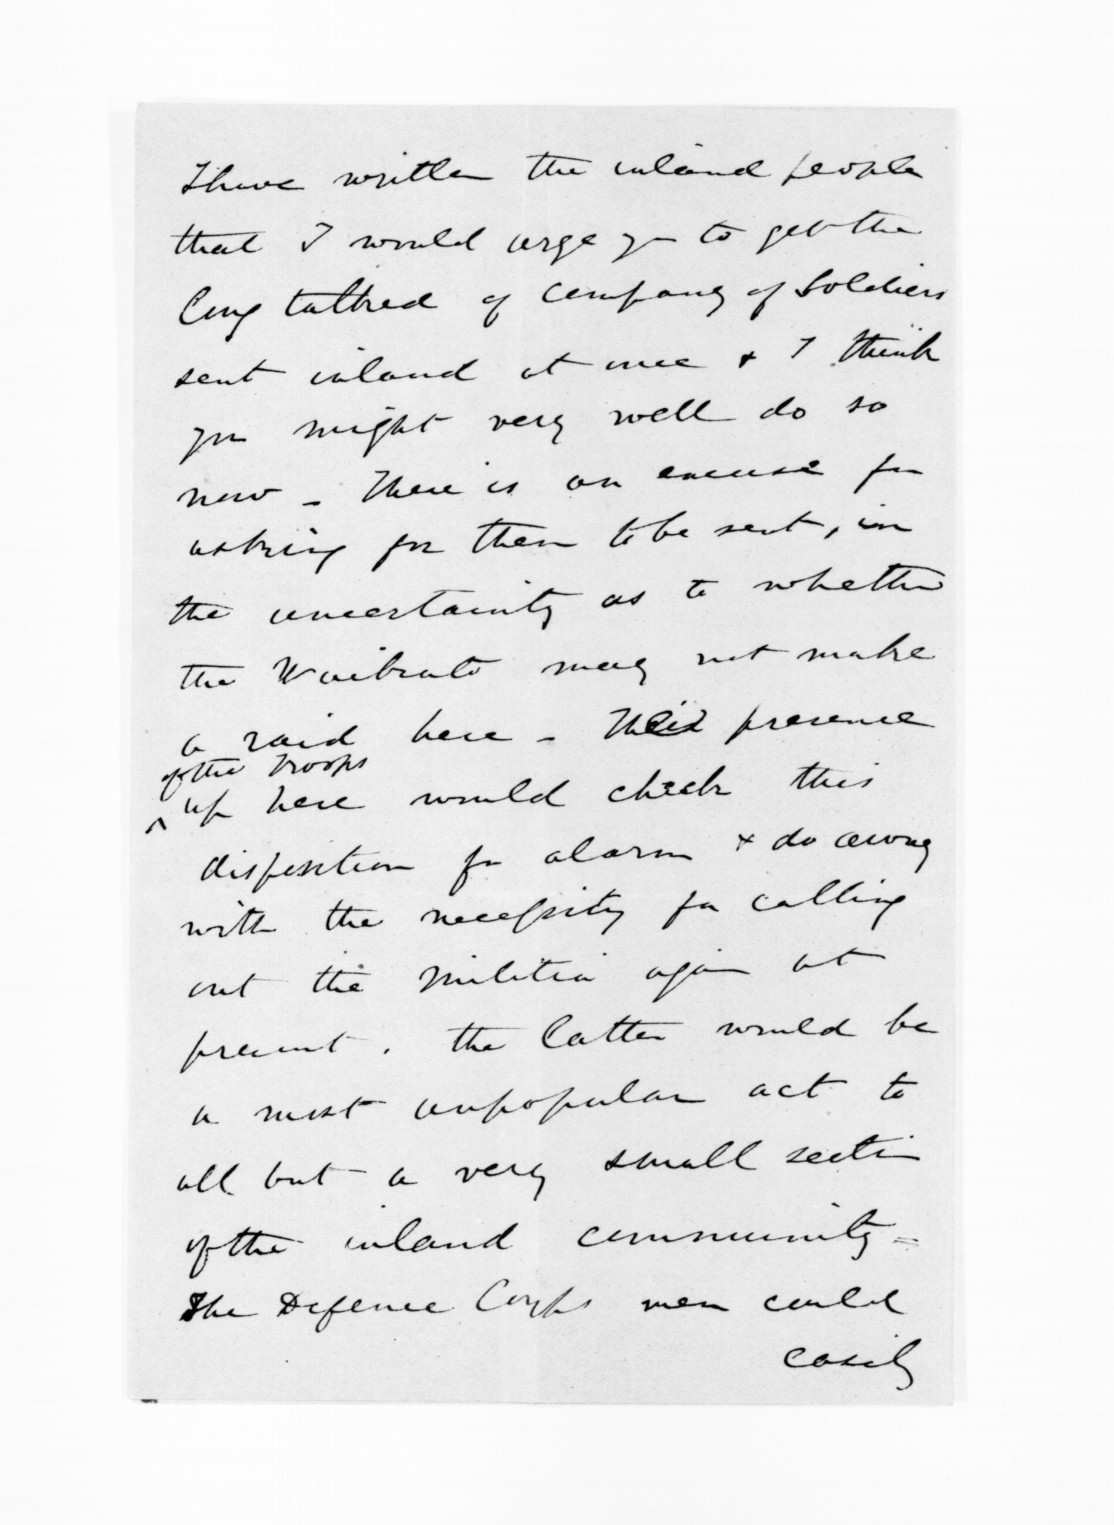 I have written the inland people
that I would urge you to get the
long talked of company of Soldiers
sent inland at once & I think
you might very well do so
now _ There is an excuse for
asking for them to be sent, in
the uncertainty as to whether
the Waikato may not make
a raid here _ Their presence
of the troops
up here would check this
disposition for alarm & do away
with the necessity for calling
out the Militia again at
present. the latter would be
a most unpopular act to
all but a very small section
of the inland community =
The Defence Corps men could
easily